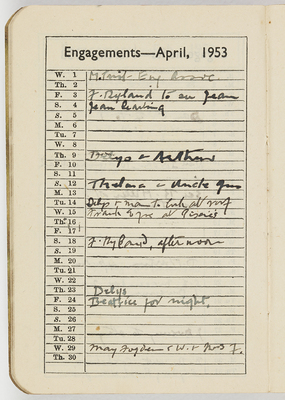 Engagements—April, 1953
W. 1
Th. 2
F. 3 F. Ryland to see Jean
S. 4 Jean leaving
S. 5
M. 6
Tu. 7
W. 8
Th. 9 Delys & Arthur
F. 10
S. 11
S. 12 Thelma & Uncle Gus
M. 13
Tu. 14 Delys & man to look at roof
W. 15 Frank
Th. 16
F. 17
S. 18 F. Ryland, afternoon
S. 19
M. 20
Tu. 21
W. 22
Th. 23 Delys
F. 24 Beatrice for night.
S. 25
S. 26
M. 27
Tu. 28
W. 29 May
Th. 30